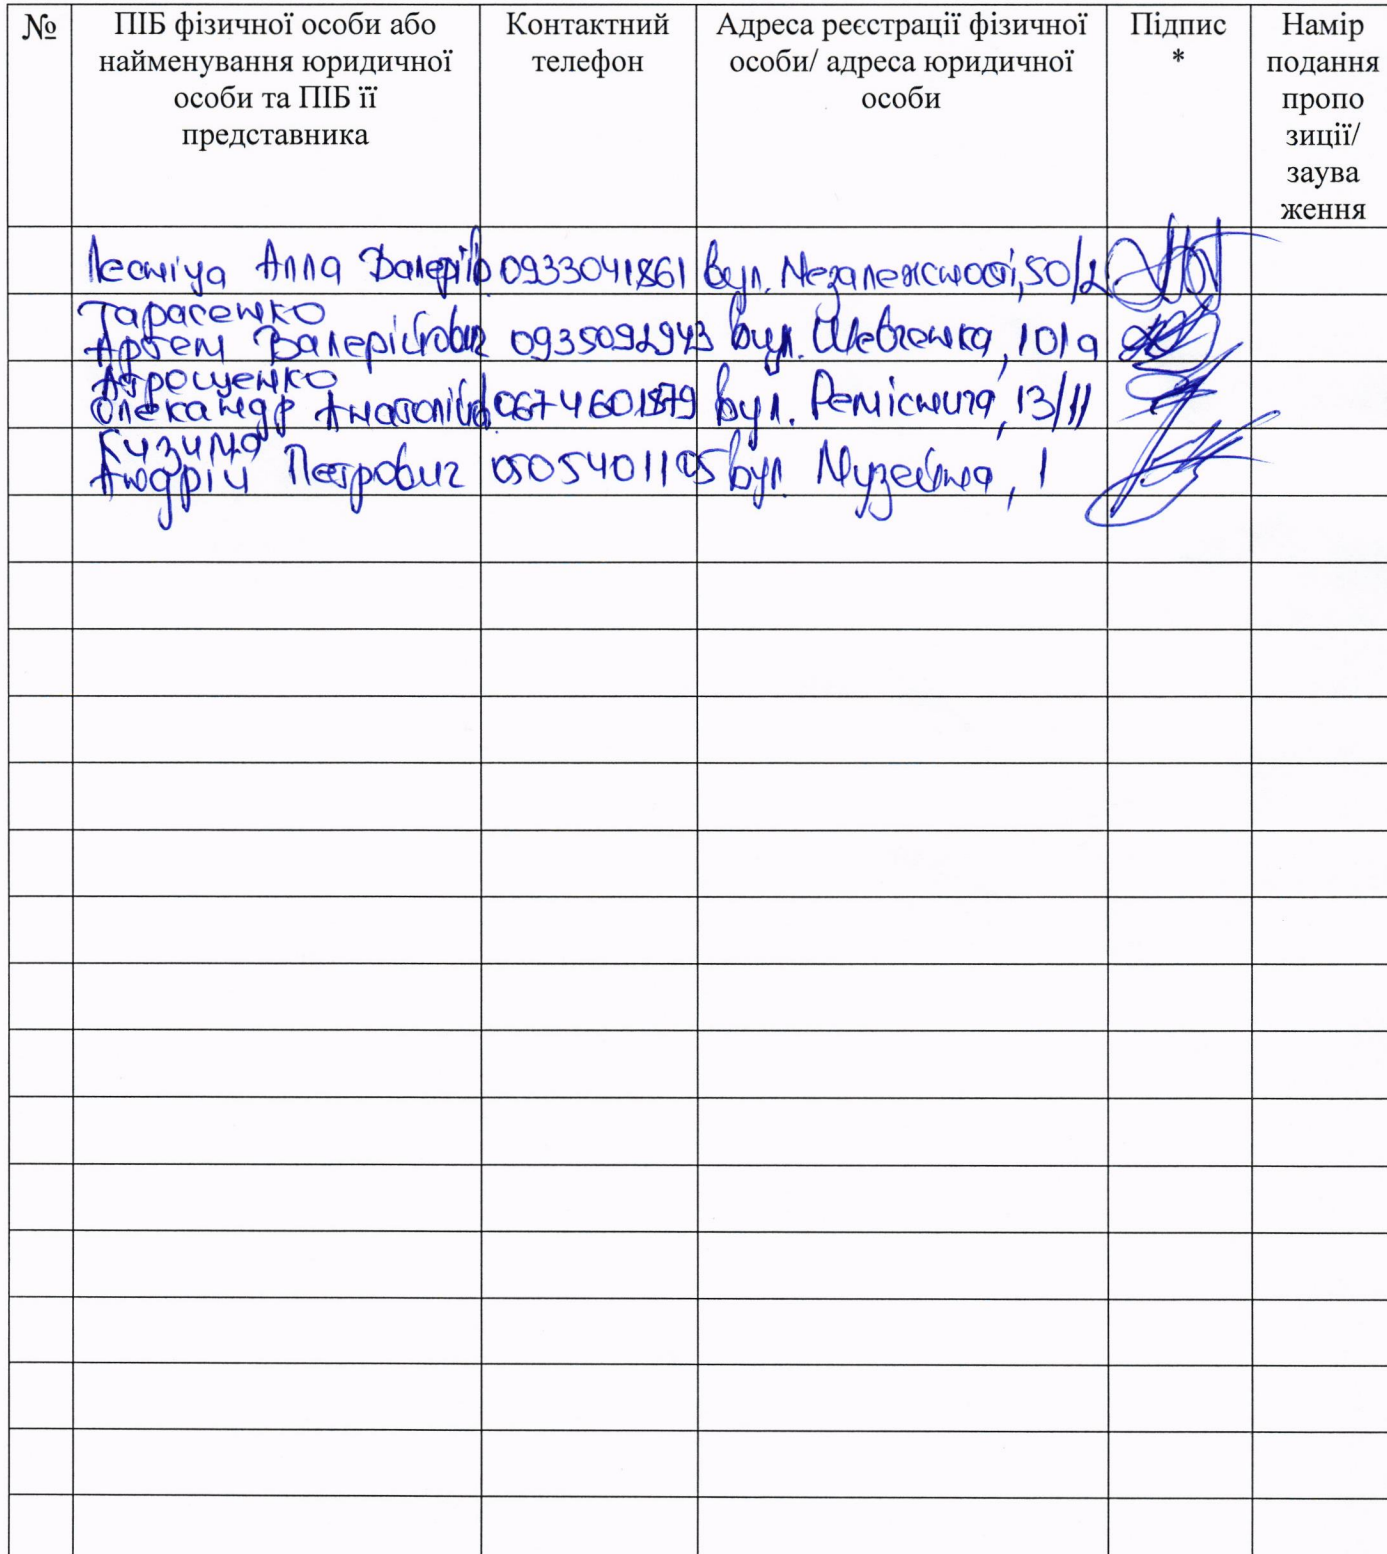 №
ПІБ фізичної особи або
найменування юридичної
особи та ПІБ її
представника
Контактний
телефон
Адреса реєстрації фізичної
особи/ адреса юридичної
особи
Підпис
*
Намір
подання
пропо
зиції/
заува
ження
Алла Валеріїв 0933041861 вул. Незалежності, 50/2
Тарасенко
Артем Валерійович 0935092943 вул. Шевченка, 101а
Атрощенко
Олександр Анатолійо 0674601879 вул. Реміснича, 13/11
Кизима
Андрій Петрович 0505401105 вул. Музейна, 1